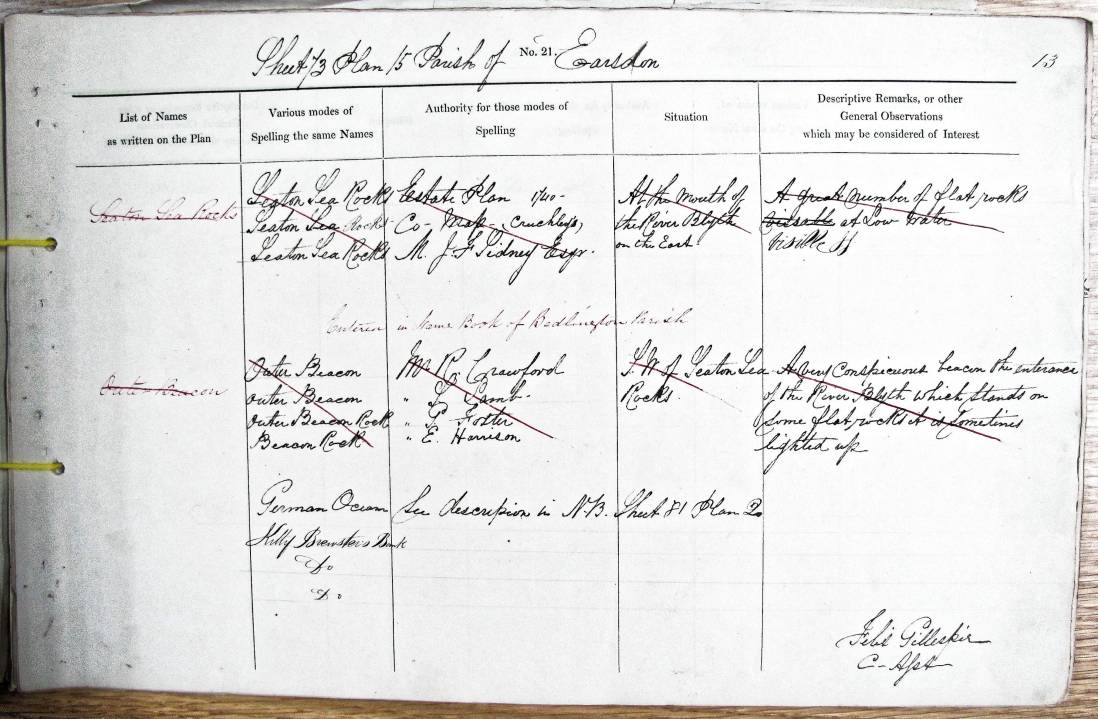 Sheet 73 Plan 15 Parish of No. 21. Earsdon 13
List of Names
as written on the Plan
Various modes of
Spelling the same Names
Authority for those modes of
Spelling
Situation
Descriptive Remarks, or other
General Observations
which may be considered of Interest
Seaton Sea Rocks
Seaton Sea Rocks
Seaton Sea Rocks
Seaton Sea Rocks
Estate Plan 1740-
Co- Map, Cruchley's,
M. J. F Sidney Esqr.
At the Mouth of
the River Blyth
on the East
A great number of flat rocks
visable at Low Water
Entered in Name Book of Bedlington Parish
Outer Beacon
Outer Beacon
Outer Beacon
Outer Beacon Rock
Beacon Rock
Mr R. Crawford
" L. Lamb
" G. Foster
" E. Harrison
S.W of Seaton Sea
Rocks.
A very Conspicuous beacon the enterance
of the River Blyth which stands on
some flat rocks it is Sometimes
lighted up
German Ocean See descripion in N.B. Sheet 81 Plan 2
Kitty Brewster's Bank
Do
Do
Felix Gilleskie
C- Asst